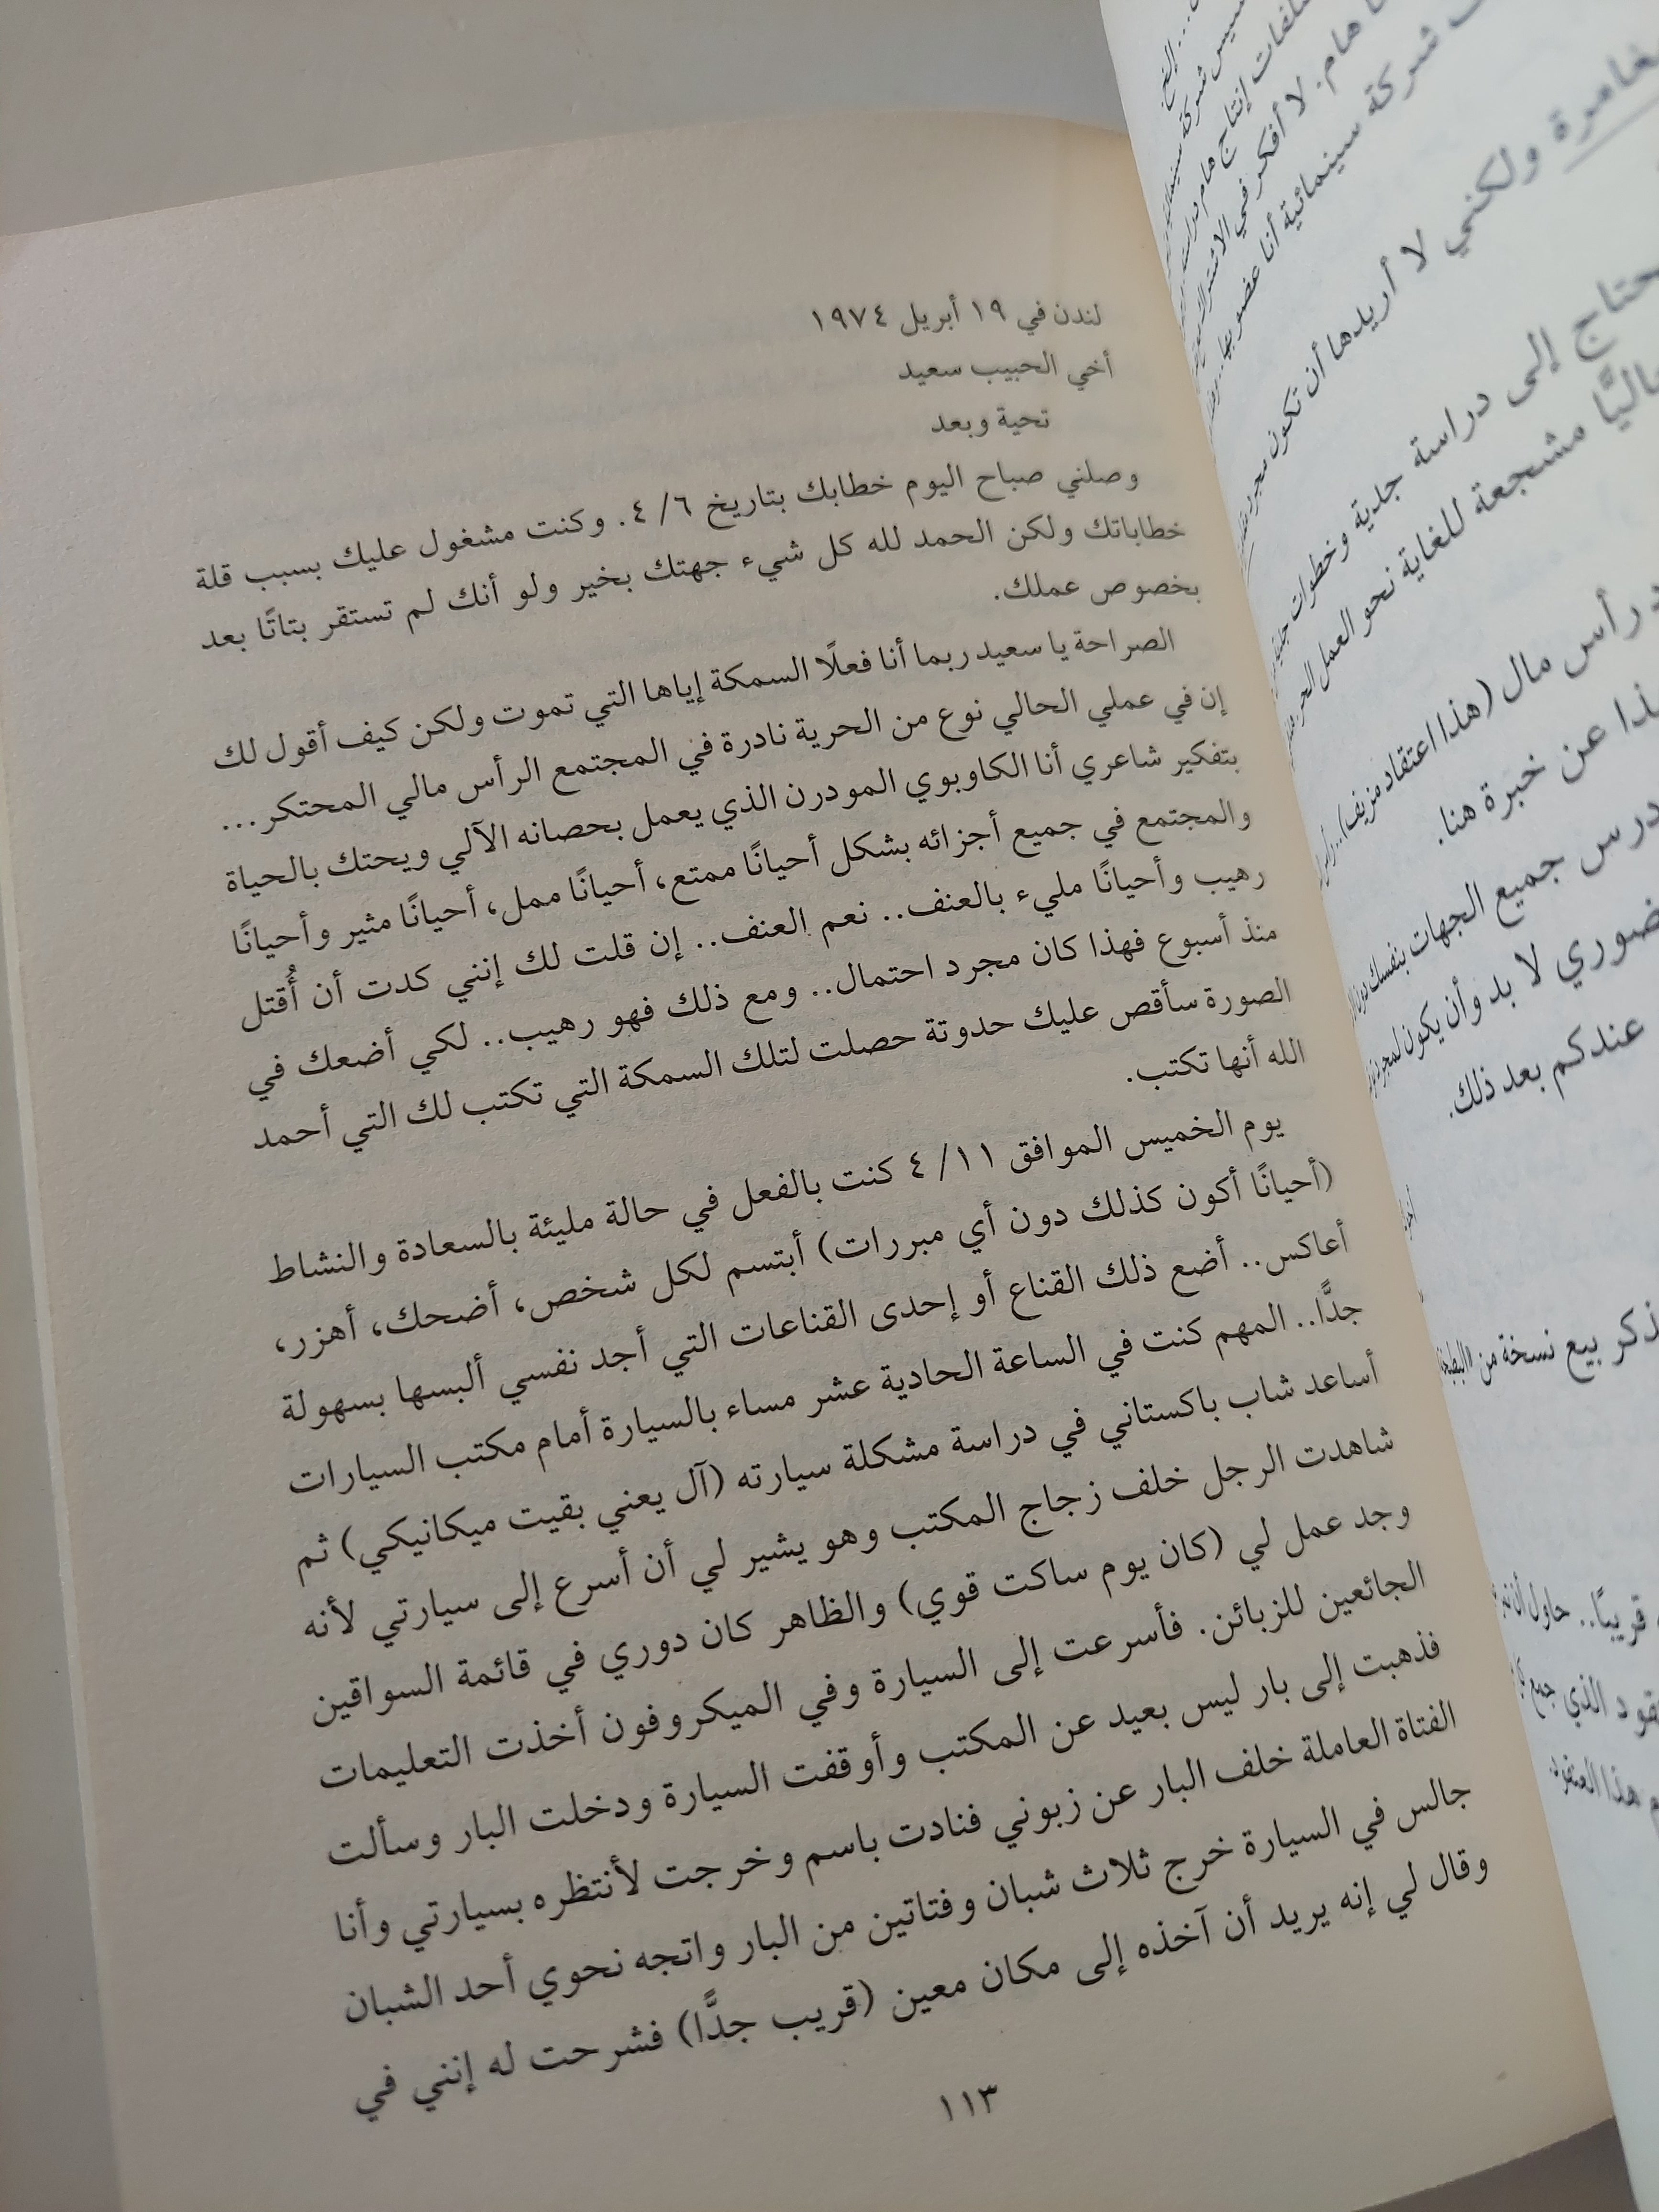 لندن في ١٩ أبريل ١٩٧٤
أخي الحبيب سعيد
تحية وبعد
وصلني صباح اليوم خطابك بتاريخ ٦/ ٤. وكنت مشغول عليك بسبب قلة
خطاباتك ولكن الحمد لله كل شيء جهتك بخير ولو أنك لم تستقر بتاتًا بعد
بخصوص عملك.
الصراحة يا سعيد ربما أنا فعلًا السمكة إياها التي تموت ولكن كيف أقول لك
إن في عملي الحالي نوع من الحرية نادرة في المجتمع الرأس مالي المحتكر...
بتفكير شاعري أنا الكاوبوي المودرن الذي يعمل بحصانه الآلي ويحتك بالحياة
والمجتمع في جميع أجزائه بشكل أحيانًا ممتع، أحيانًا ممل، أحيانًا مثير وأحيانًا
رهيب وأحيانًا مليء بالعنف.. نعم العنف.. إن قلت لك إنني كدت أن أُقتل
منذ أسبوع فهذا كان مجرد احتمال.. ومع ذلك فهو رهيب.. لكي أضعك في
الصورة سأقص عليك حدوتة حصلت لتلك السمكة التي تكتب لك التي أحمد
الله أنها تكتب.
يوم الخميس الموافق ١١/ ٤ كنت بالفعل في حالة مليئة بالسعادة والنشاط
(أحيانًا أكون كذلك دون أي مبررات) أبتسم لكل شخص، أضحك، أهزر،
أعاكس.. أضع ذلك القناع أو إحدى القناعات التي أجد نفسي ألبسها بسهولة
جدًّا.. المهم كنت في الساعة الحادية عشر مساء بالسيارة أمام مكتب السيارات
أساعد شاب باكستاني في دراسة مشكلة سيارته (آل يعني بقيت ميكانيكي) ثم
شاهدت الرجل خلف زجاج المكتب وهو يشير لي أن أسرع إلى سيارتي لأنه
وجد عمل لي (كان يوم ساكت قوي) والظاهر كان دوري في قائمة السواقين
الجائعين للزبائن. فأسرعت إلى السيارة وفي الميكروفون أخذت التعليمات
فذهبت إلى بار ليس بعيد عن المكتب وأوقفت السيارة ودخلت البار وسألت
الفتاة العاملة خلف البار عن زبوني فنادت باسم وخرجت لأنتظره بسيارتي وأنا
جالس في السيارة خرج ثلاث شبان وفتاتين من البار واتجه نحوي أحد الشبان
وقال لي إنه يريد أن آخذه إلى مكان معين (قريب جدًّا) فشرحت له إنني في
١١٣
إلخ
إنتاج هام
هام. لا أفكر في
شركة سينمائية أنا عضو بها..
ولكني لا أريدها أن تكون مجرد
إلى دراسة جدية وخطوات
مشجعة للغاية نحو العمل الحر
رأس مال (هذا اعتقاد مزيف)..
عن خبرة هنا.
جميع الجهات بنفسك
لا بد وأن يكون
عندكم بعد ذلك.
بيع نسخة من
قريبًا.. حاول أن
الذي جمع
هذا